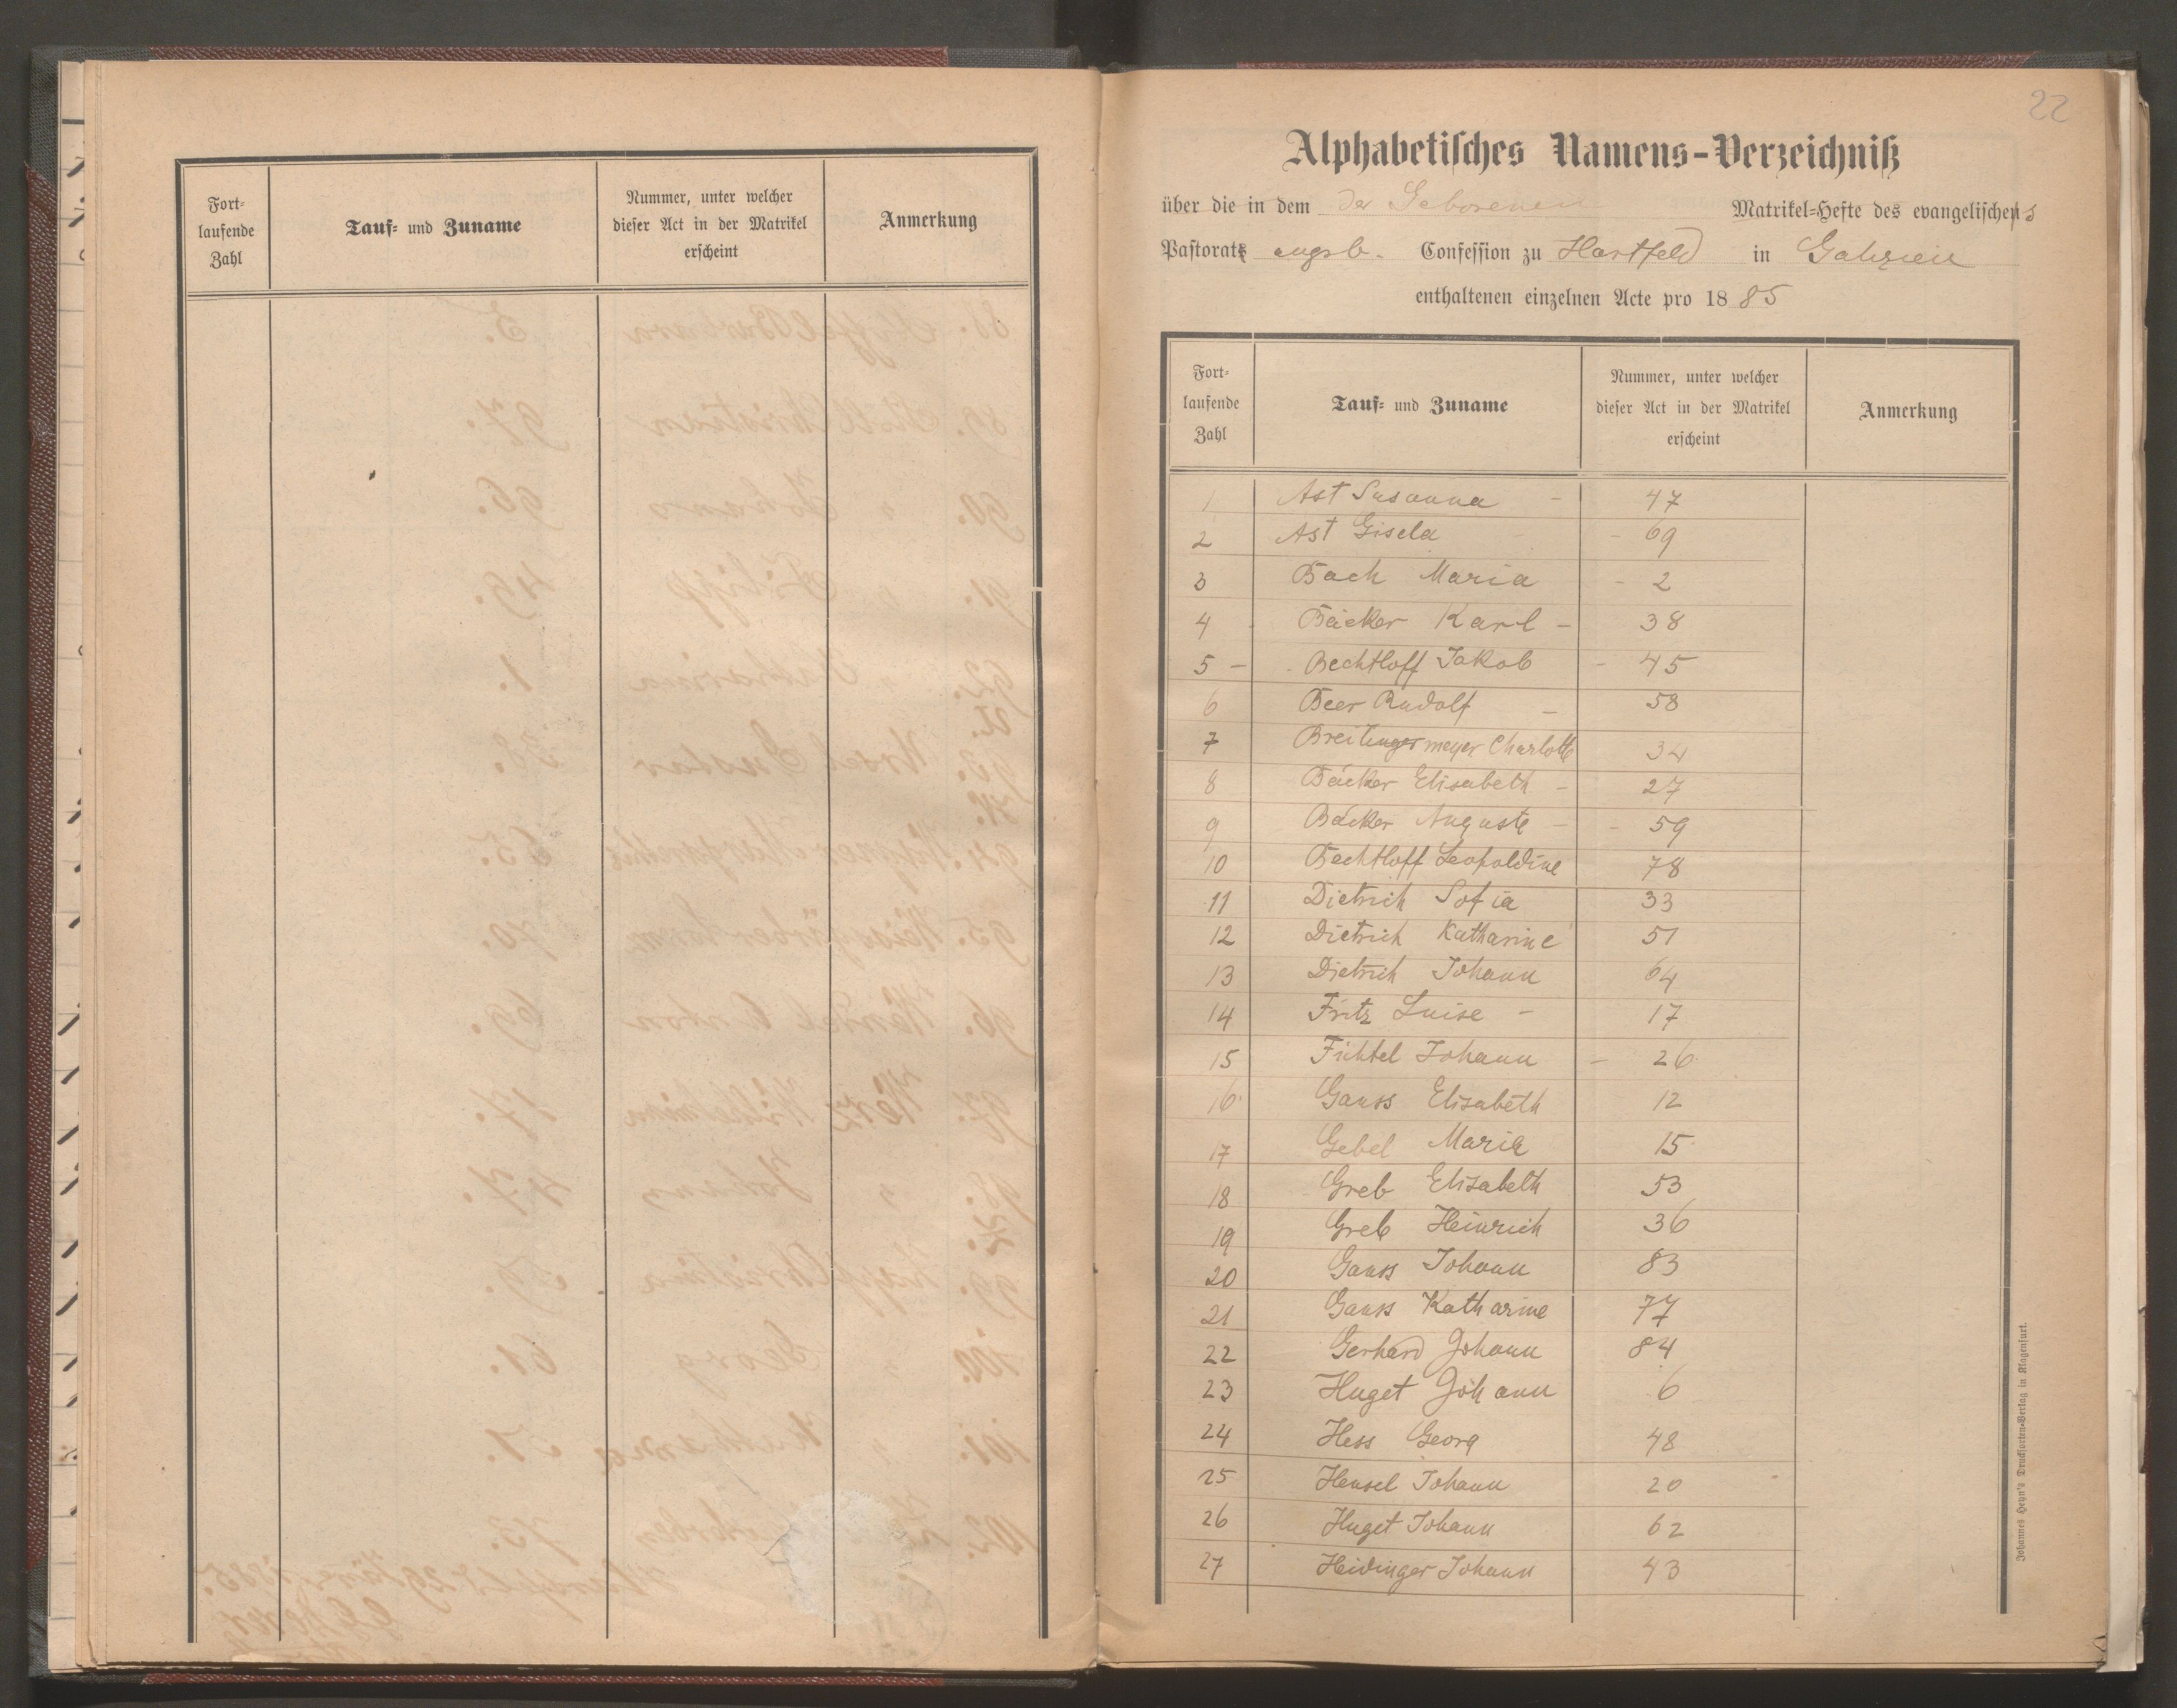 Fort-
laufende
Zahl
Tauf- und Zuname
Nummer, unter welcher
dieser Act in der Matrikel
erscheint
Anmerkung
22
Alphabetisches Namens-Verzeichniß
über die in dem der Geborenen Matrikel-Hefte des evangelischen
Pastorats augsb. Confession zu Hartfeld in Galizien
enthaltenen einzelnen Acte pro 1885
Fort-
laufende
Zahl
Tauf- und Zuname
Nummer, unter welcher
dieser Act in der Matrikel
erscheint
Anmerkung
1 Ast Susanna - 47
2 Ast Gisela - 69
3 Bach Maria - 2
4 Bäcker Karl - 38
5 - Bechtloff Jakob - 45
6 Beer Rudolf - 58
7 Breitengermeyer Charlotte 34
8 Bäcker Elisabeth - 27
9 Bäcker Auguste - 59
10 Bechtloff Leopoldine 78
11 Dietrich Sofia 33
12 Dietrich Katharine 51
13 Dietrich Johann 64
14 Fritz Luise - 17
15 Fichtel Johann - 26
16 Gauss Elisabeth 12
17 Gebel Maria 15
18 Greb Elisabeth 53
19 Greb Heinrich 36
20 Gauss Johann 83
21 Gauss Katharine 77
22 Gerhard Johann 84
23 Huget Johann 6
24 Hess Georg 48
25 Hensel Johann 20
26 Huget Johann 62
27 Heidinger Johann 43
Johannes Heyn's Drucksorten-Verlag in Klagenfurt.